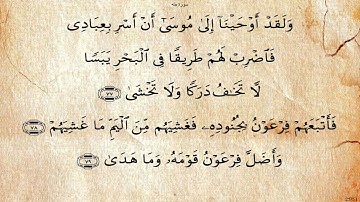 سورة طه
وَلَقَدْ أَوْحَيْنَآ إِلَىٰ مُوسَىٰٓ أَنْ أَسْرِ بِعِبَادِى
فَٱضْرِبْ لَهُمْ طَرِيقًا فِى ٱلْبَحْرِ يَبَسًا
لَّا تَخَٰفُ دَرَكًا وَلَا تَخْشَىٰ ٧٧
فَأَتْبَعَهُمْ فِرْعَوْنُ بِجُنُودِهِۦ فَغَشِيَهُم مِّنَ ٱلْيَمِّ مَا غَشِيَهُمْ ٧٨
وَأَضَلَّ فِرْعَوْنُ قَوْمَهُۥ وَمَا هَدَىٰ ٧٩